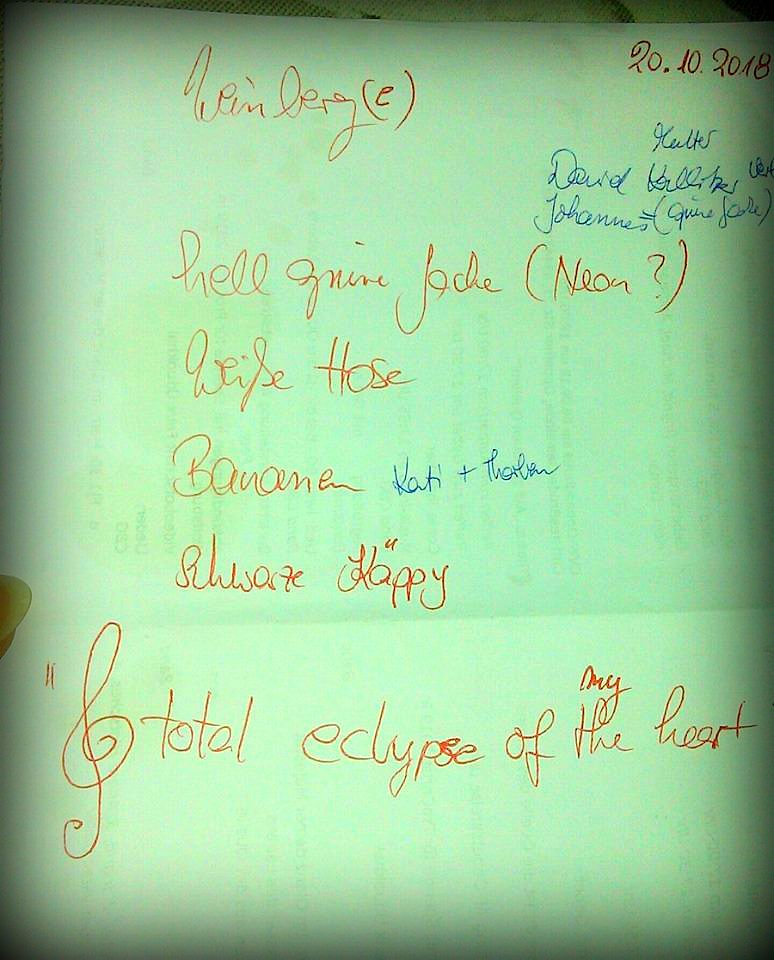 20.10.2018
Weinberg(e)
David
Johannes = (grüne Jacke)
hell grüne Jacke (Neon?)
Weiße Hose
Bananen Kati + Thorben
Schwarze Käppy
my
"total eclypse of the heart"